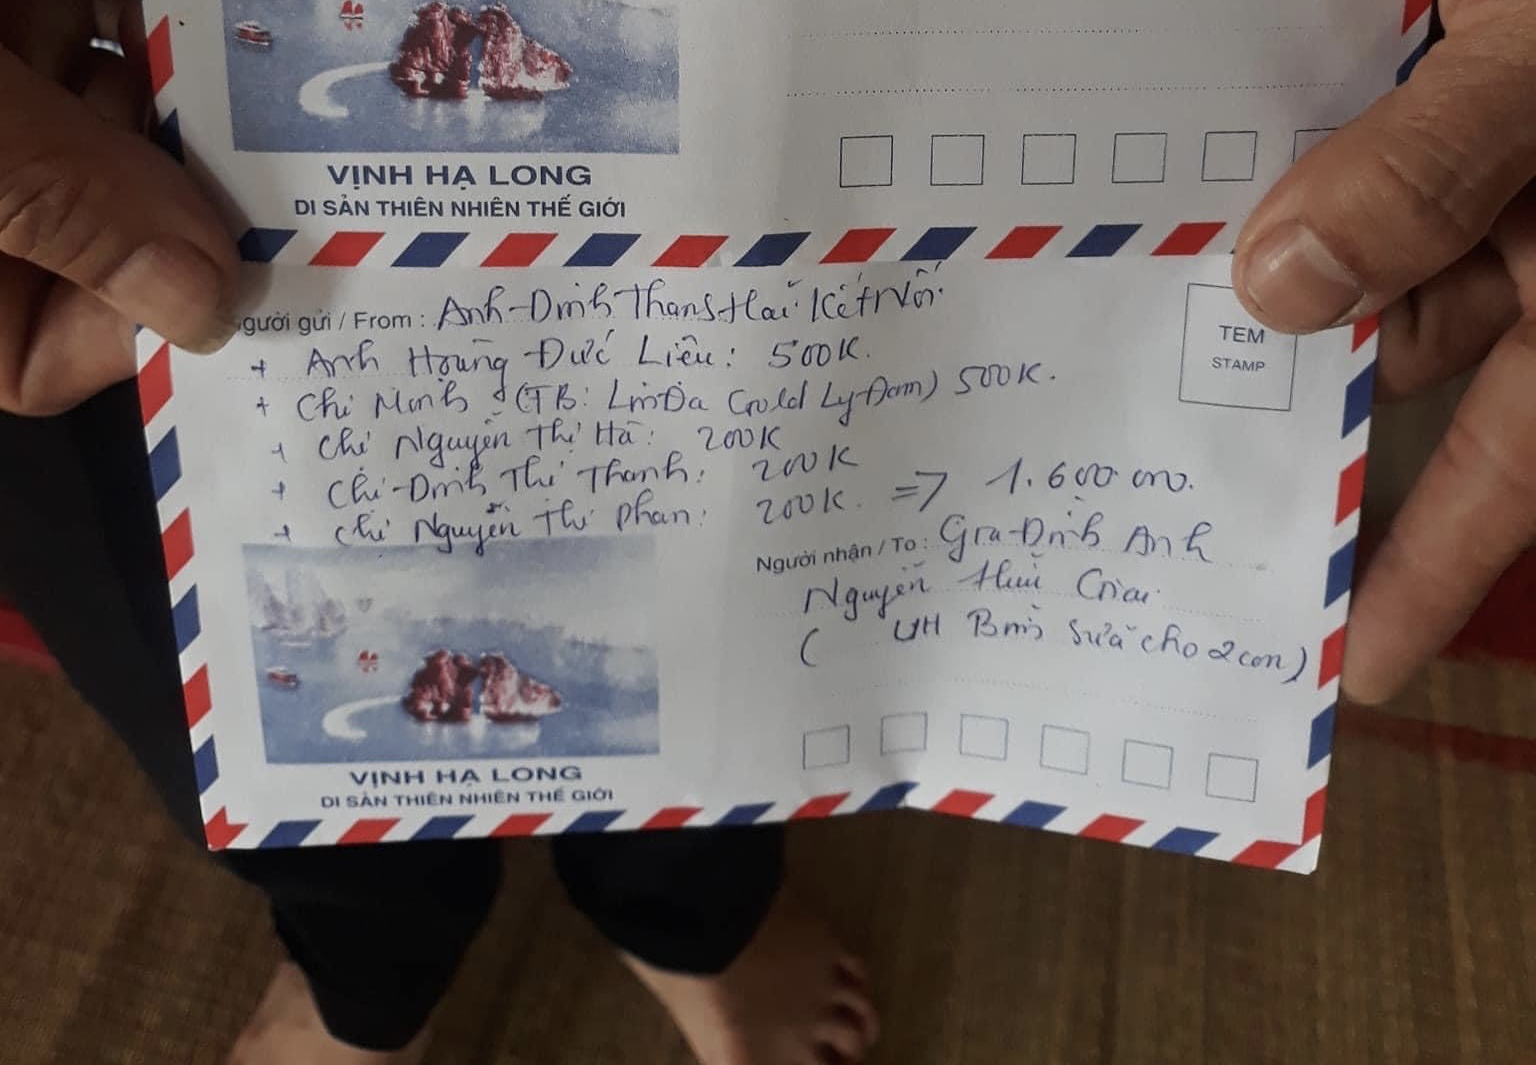 VỊNH HẠ LONG
DI SẢN THIÊN NHIÊN THẾ GIỚI
gười gửi / From : Anh Đinh Thanh Hải Kết Nối
+ Anh Hoàng Đức Liêu: 500K.
+ Chị Minh (TB: LinDa Gold Ly Đam) 500K.
+ Chị Nguyễn Thị Hà: 200K
+ Chị Đinh Thị Thanh: 200K
+ Chị Nguyễn Thị Phan: 200K. => 1.600 000.
TEM
STAMP
Người nhận / To : Gia Đình Anh
Nguyễn Hữu
( UH Bỉm sữa cho 2 con)
VỊNH HẠ LONG
DI SẢN THIÊN NHIÊN THẾ GIỚI